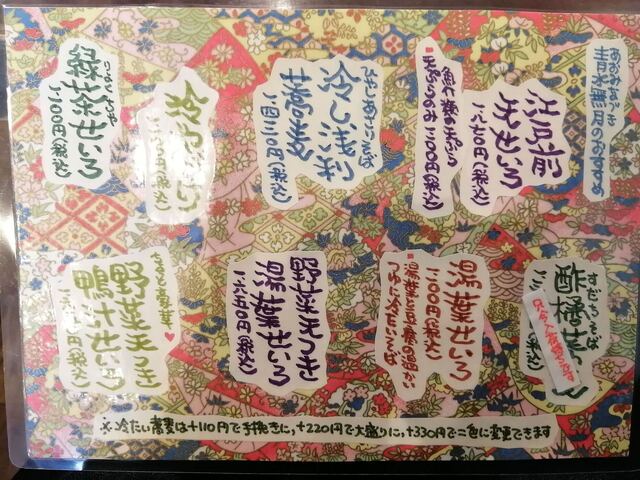 あおみなづき
青水無月のおすすめ
江戸前
天せいろ
一八七〇円(税込)
魚介類の天ぷら
天ぷらのみ一一〇〇円(税込)
ひやしあさりそば
冷し浅利
蕎麦
一四三〇円(税込)
円(税込)
緑茶せいろ
一一〇〇円(税込)
すだちそば
酢橘
湯葉せいろ
一一〇〇円(税込)
湯葉と豆腐の温かい
つゆと冷たいそば
野菜天つき
湯葉せいろ
一六五〇円(税込)
ちょっと豪華♥
野菜天つき
鴨汁せいろ
円(税込)
※冷たい蕎麦は+110円で手挽きに,+220円で大盛りに,+330円で二色に変更できます